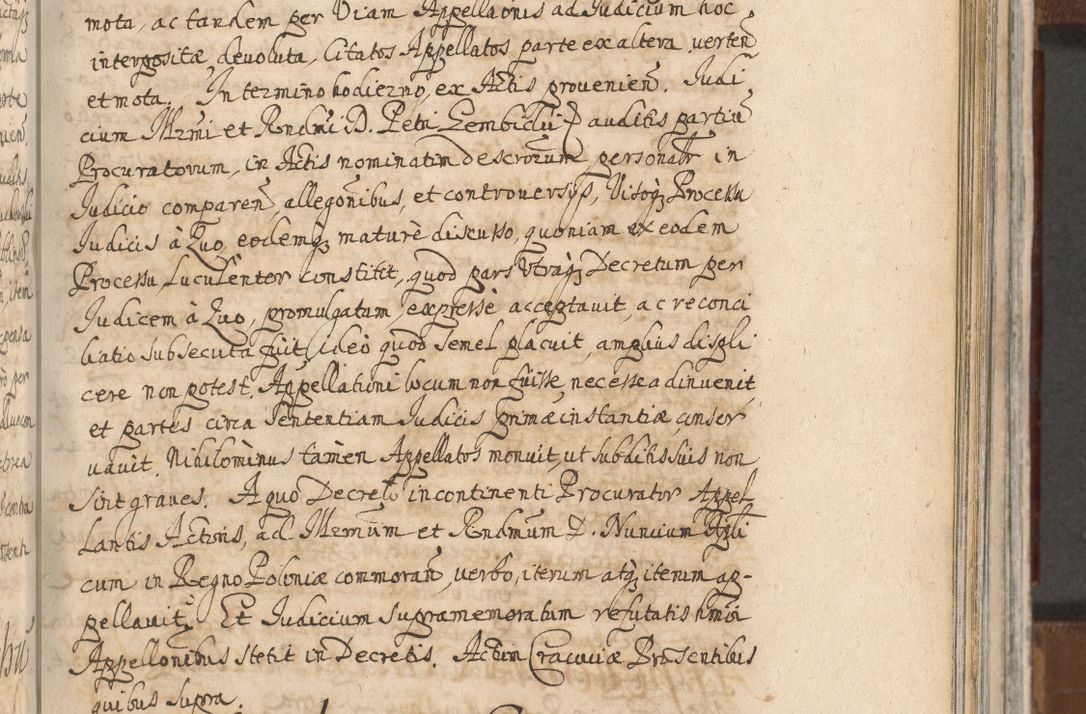 mota, ac tandem per Viam Appellaonis ad Judicium hoc
interpositæ, devoluta, Citatos Appellatos parte ex altera verteñ
et mota. In termino hodierno, ex Actis provenieñ. Judi
cium Illrmi et Rndmi D. Petri Gembicki auditis partiū
Procuratorum, in Actis nominatim descrorum, personaltr in
Judicio compareñ, allegonibus, et controversijs, Visoq3 Processu
Judicis à Quo, eodemq3 maturè discusso, quoniam ex eodem
Processu, Luculenter constitit, quod pars Utraq3 Decretum per
Judicem à Quo, promulgatum, expresse acceptavit, ac reconci
liatio subsecuta fuit, ideò quod semel placuit, amplius displi
cere non potest. Appellationi locum non fuisse, necesse adinvenit
et partes circa Sententiam Judicis primæ instantiæ conser
vavit. Nihilominus tamen Appellatos monuit, ut subditis suis non
sint graves. A quo Decreto incontinenti Procurator Appel
lantis Actoris, ad Illrmum et Rndmum D. Nuncium Apli
cum in Regno Poloniæ commorañ, verbo, iterum atq3 iterum ap-
pellavit. Et Judicium supramemoratum refutatis hmoi
Appellonibus stetit in Decretis. Actum Cracoviæ Præsentibus
quibus supra.